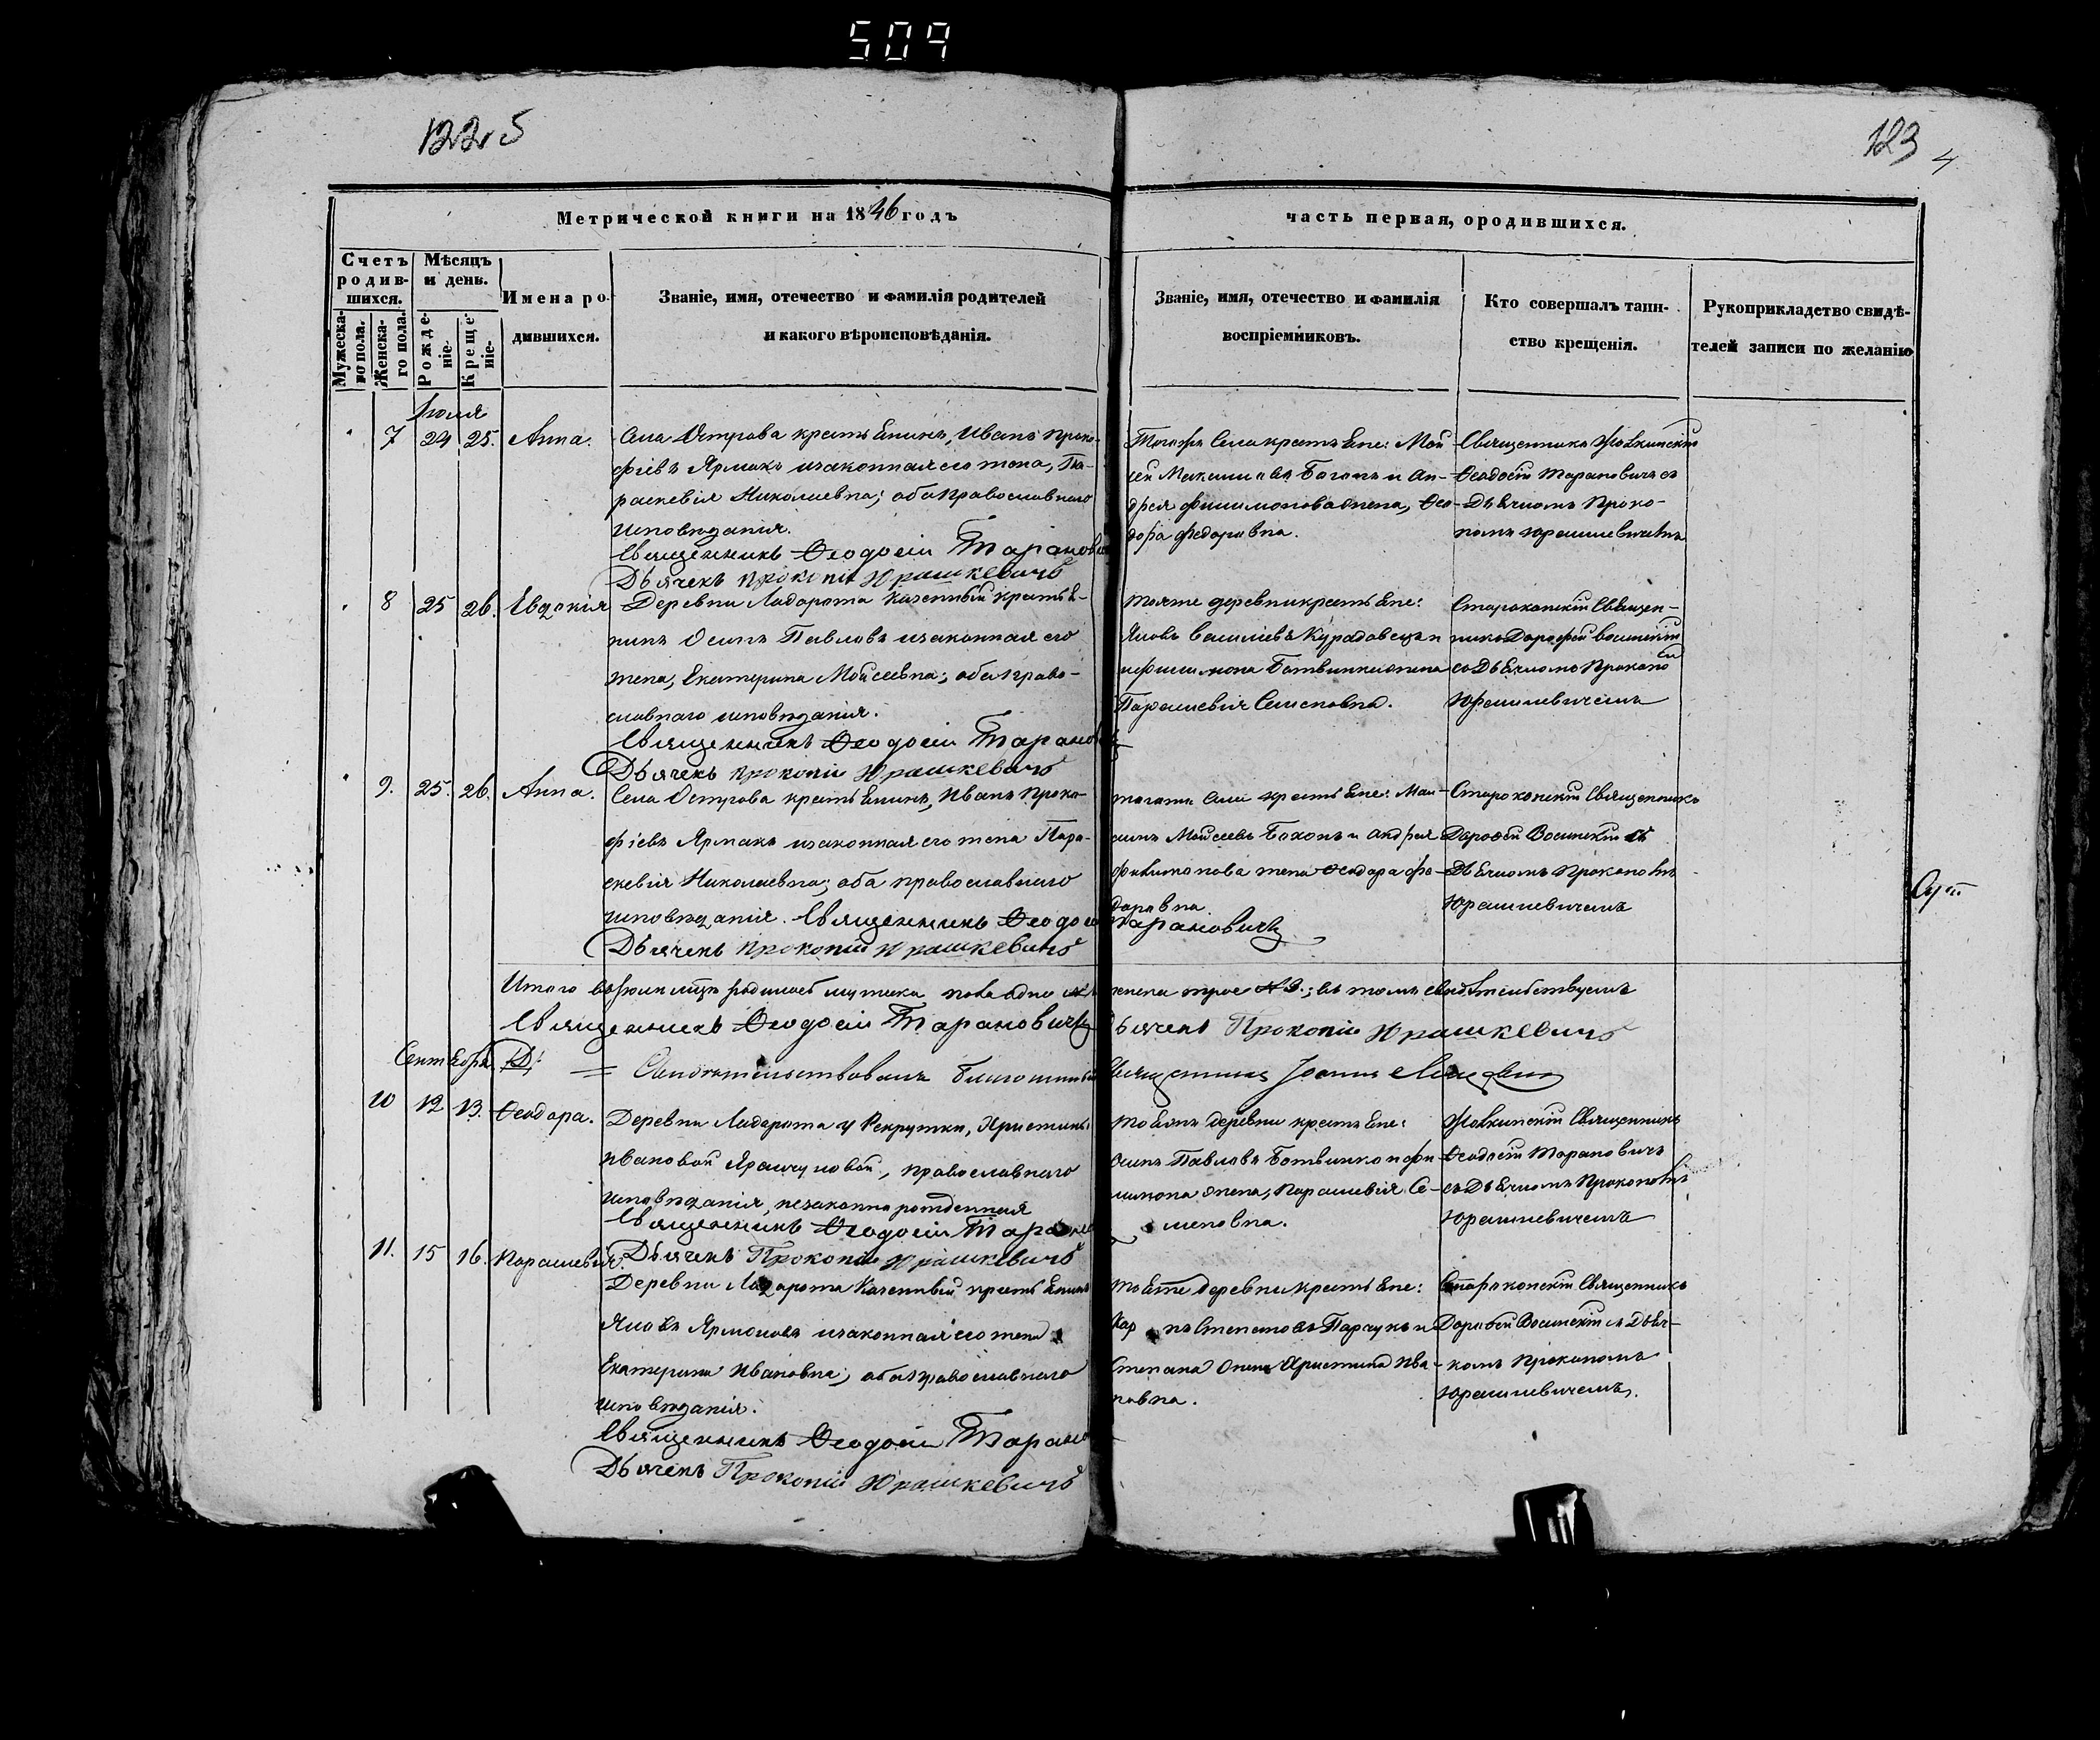 509
122 об
123
4
Метрической книги на 1846 годъ
часть первая, о родившихся.
Счетъ родив-шихся.
Мѣсяцъ и день.
Имена ро-дившихся.
Званіе, имя, отечество и фамилія родителей
и какого вѣроисповѣданія.
Званіе, имя, отечество и фамилія
воспріемниковъ.
Кто совершалъ таин-
ство крещенія.
Рукоприкладство свидѣ-
телей записи по желанію
Мужеска-го пола.
Женска-го пола.
Рожде-ніе.
Креще-ніе.
Іюля
7 24 25. Анна.
Села Острова крестьянинъ, Иванъ Проко-
фіевъ Ярмакъ и законная его жена, Па-
раскевія Николаевна; оба православнаго
исповѣданія.
Священникъ Ѳеодосій Таранович
Дьячекъ Прокопій Юрашкевичъ
Тогожъ Села крестьяне: Мой-
сей и Ан-
дрея Филимонова жена, Ѳео-
дора Федоровна.
Священникъ
Ѳеодосій Тарановичъ съ
Дьячкомъ Проко-
помъ Юрашкевичемъ
8 25 26. Евдокія
Деревни казенный крестья-
нинъ Осипъ Павловъ и законная его
жена, Екатерина Мойсеевна; оба право-
славнаго исповѣданія.
Священникъ Ѳеодосій Таранов
Дьячекъ Прокопій Юрашкевичъ
тояже деревни крестьяне:
Яковъ Василіевъ и
Филимона Ботвинки жена
Параскевія Семеновна.
Священ-
никъ Дорофей
съ Дьячкомъ Прокопо
Юрашкевичемъ
9. 25. 26. Анна.
Села Острова крестьянинъ, Иванъ Проко-
фіевъ Ярмакъ и законная его жена Пара-
скевія Николаевна; оба православнаго
исповѣданія. Священникъ Ѳеодосій Тарановичъ
Дьячекъ Прокопій Юрашкевичъ
тогожъ Села крестьяне: Мак-
симъ Мойсеевъ и Андрея
Филимонова жена Ѳеодора Фе-
доровна
Священникъ
Дорофей съ
Дьячкомъ Прокопомъ
Юрашкевичемъ
Итого въ Іюлѣ мѣсяцѣ родилось мужеска пола одно женска трое №3.; въ томъ свидѣтельствуемъ
Священникъ Ѳеодосій Тарановичъ Дьячекъ Прокопій Юрашкевичъ
Свидѣтельствовалъ Благочинный Священникъ Іоаннъ
Сентября
10 12 13. Ѳеодора.
Деревни у Рекрутки, Христины
Ивановой православнаго
исповѣданія, незаконно рожденная
Священникъ Ѳеодосій Таранов
Дьячекъ Прокопій Юрашкевичъ
тоеяжъ деревни крестьяне:
Осипъ Павловъ Ботвинко и Фи-
лимона жена, Параскевія Се-
меновна.
Священникъ
Ѳеодосій Тарановичъ
съ Дьячкомъ Прокопомъ
Юрашкевичемъ
11. 15 16. Параскевія.
Деревни Казенный крестьянинъ
Яковъ и законная его жена
Екатерина Ивановна; оба православнаго
исповѣданія.
Священникъ Ѳеодосій Таранов
Дьячекъ Прокопій Юрашкевичъ
тоеже деревни крестьяне:
Степановъ и
Степана жена Христина Ива-
новна.
Священникъ
Дорофей съ Дьяч-
комъ Прокопомъ
Юрашкевичемъ.